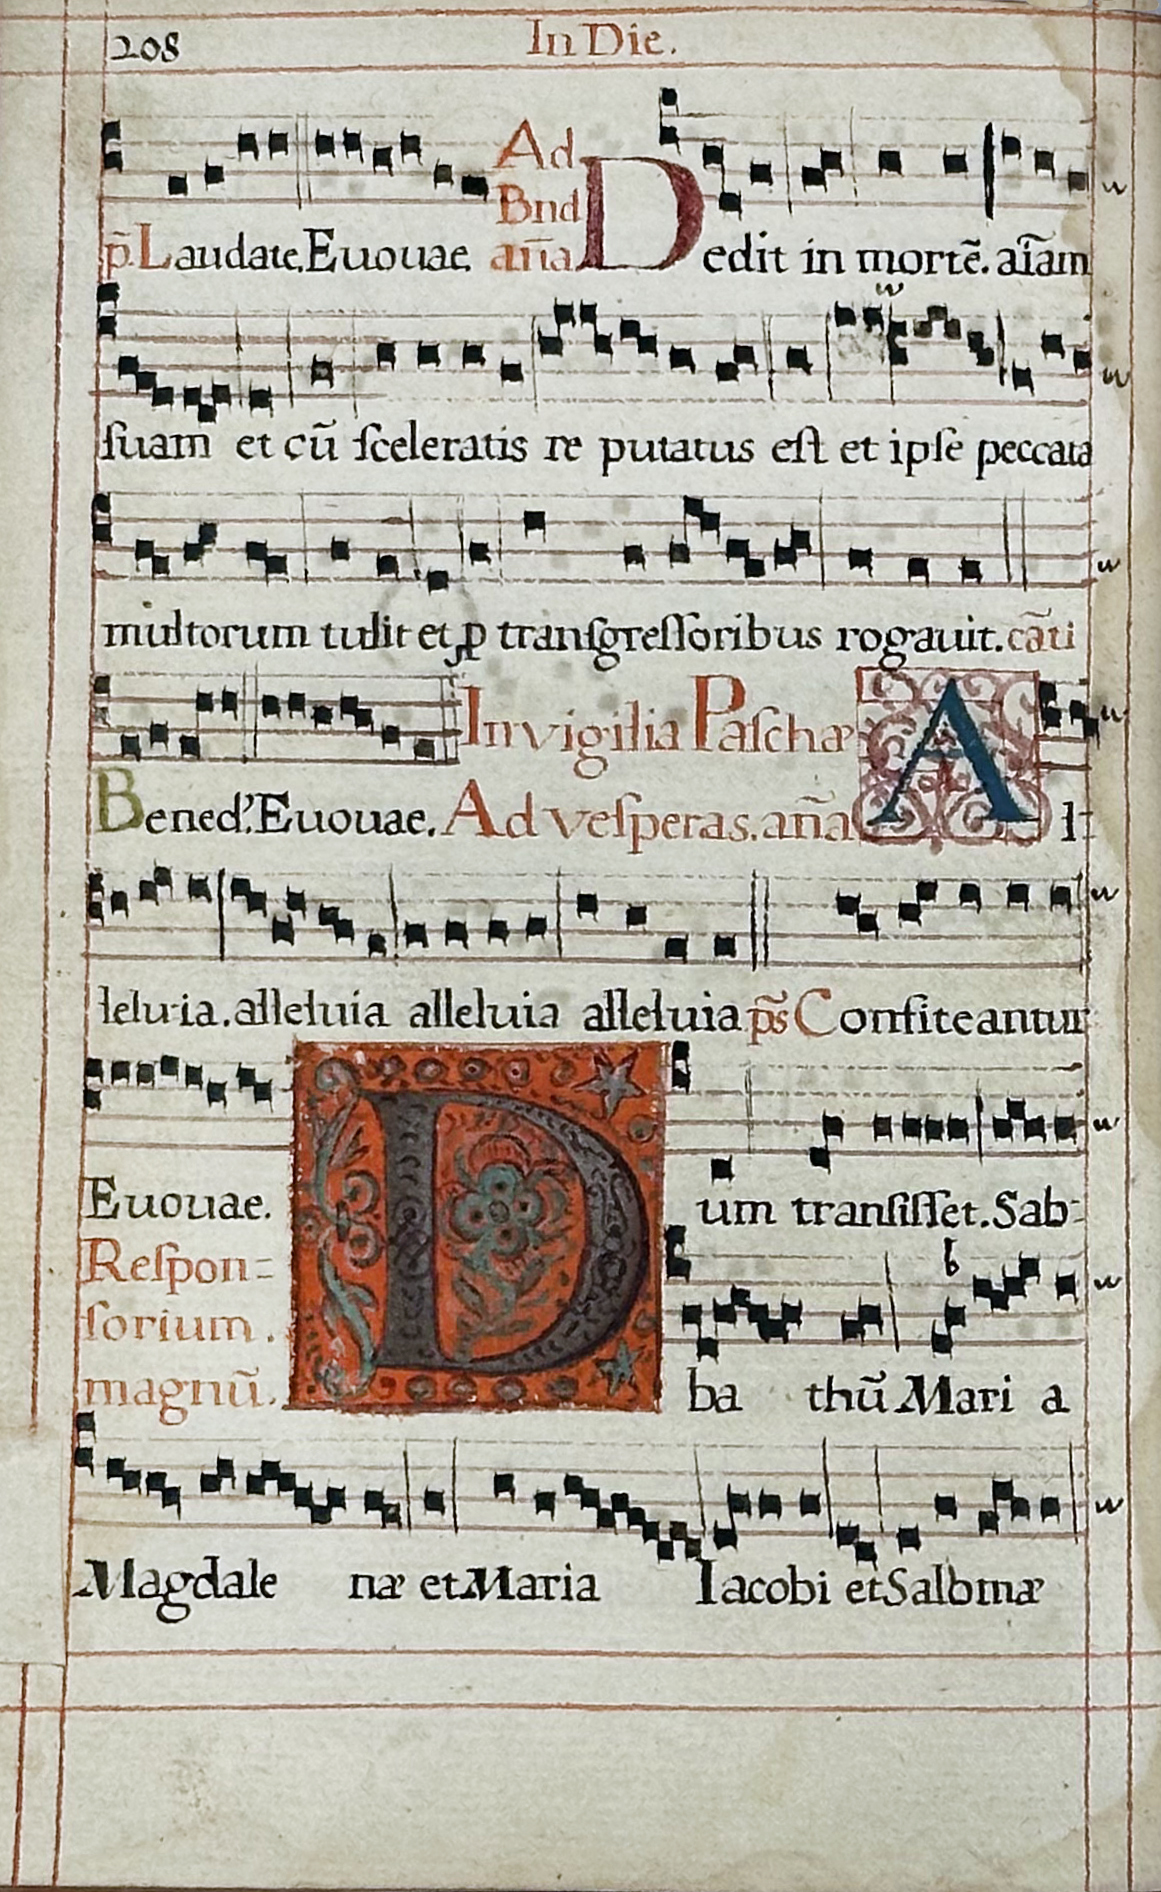 208 In Die.
Ad
Bnd
p̃. Laudate. Euouae. añia Dedit in mortẽ. aĩam
ſuam et cũ ſceleratis re putatus eſt et ipſe peccata
multorum tulit et ꝓ tranſgreſſoribus rogauit. cãti
In vigilia Paſchæ
Bened'. Euouae. Ad veſperas. aña Al-
leluia. alleluia alleluia alleluia p̃s Confiteantur
Euouae. Dum tranſiſſet. Sab-
Reſpon=
ſorium.
magnũ. ba thũ Mari a
Magdale næ et Maria Iacobi et Salomæ